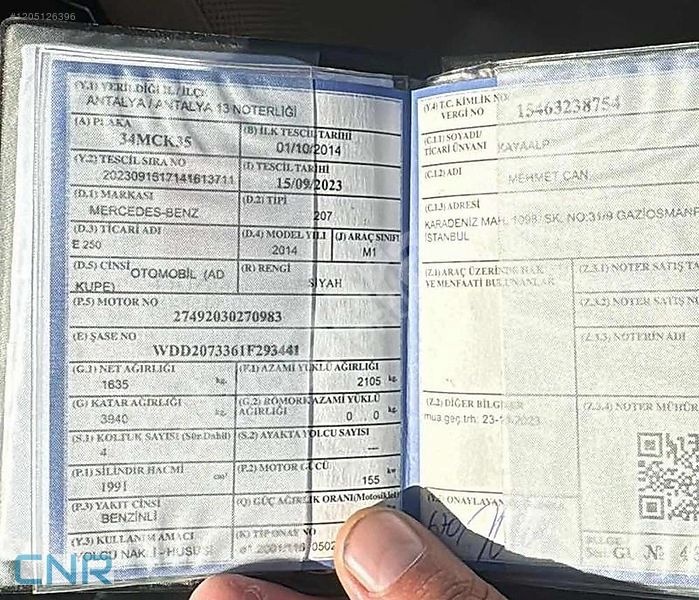 #1205126396
(Y.1) VERİLDİĞİ İL / İLÇE
ANTALYA / ANTALYA 13 NOTERLİĞİ
(A) PLAKA
34MCK35
(B) İLK TESCİL TARİHİ
01/10/2014
(Y.2) TESCİL SIRA NO
2023091617141613711
(I) TESCİL TARİHİ
15/09/2023
(D.1) MARKASI
MERCEDES-BENZ
(D.2) TİPİ
207
(D.3) TİCARİ ADI
E 250
(D.4) MODEL YILI
2014
(J) ARAÇ SINIFI
M1
(D.5) CİNSİ OTOMOBİL (AD
KUPE)
(R) RENGİ
SİYAH
(P.5) MOTOR NO
27492030270983
(E) ŞASE NO
WDD2073361F293441
(G.1) NET AĞIRLIĞI
1635 kg.
(F.1) AZAMİ YÜKLÜ AĞIRLIĞI
2105 kg.
(G) KATAR AĞIRLIĞI
3940 kg.
(G.2) RÖMORK AZAMİ YÜKLÜ
AĞIRLIĞI 0 . 0 kg.
(S.1) KOLTUK SAYISI (Sür.Dahil)
4
(S.2) AYAKTA YOLCU SAYISI
(P.1) SİLİNDİR HACMİ
1991 cm³
(P.2) MOTOR GÜCÜ
155 kw
(P.3) YAKIT CİNSİ
BENZİNLİ
(Q) GÜÇ AĞIRLIK ORANI(Motosiklet)
(Y.3) KULLANIM AMACI
YOLCU NAK. - HUSUSİ
(K) TİP ONAY NO
e1*2001/116*0502
(Y.4) T.C. KİMLİK NO/
VERGİ NO
15463238754
(C.1.1) SOYADI/
TİCARİ ÜNVANI
KAYAALP
(C.1.2) ADI
MEHMET CAN
(C.1.3) ADRESİ
KARADENİZ MAH. 1098. SK. NO:31/9 GAZİOSMANP
İSTANBUL
(Z.1) ARAÇ ÜZERİNDE HAK
VE MENFAATİ BULUNANLAR
(Z.3.1) NOTER SATIŞ TA
(Z.3.2) NOTER SATIŞ N
(Z.3.3) NOTERİN ADI
(Z.2) DİĞER BİLGİLER
mua.geç.trh:
(Z.3.4) NOTER MÜHÜR
ONAYLAYAN
BELGE
Seri GI № 4
CNR